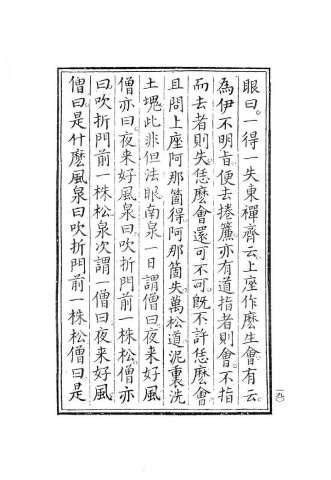 眼曰一得一失東禪齊云上座作麽生會有云
為伊不明旨便去捲簾亦有道指者則會不指
而去者則失恁麽會還可不可既不許恁麽會
且問上座阿那箇得阿那箇失萬松道泥裏洗
土塊此非但法眼南泉一日謂僧曰夜来好風
僧亦曰夜来好風泉曰吹折門前一株松僧亦
曰吹折門前一株松泉次謂一僧曰夜来好風
僧曰是什麽風泉曰吹折門前一株松僧曰是